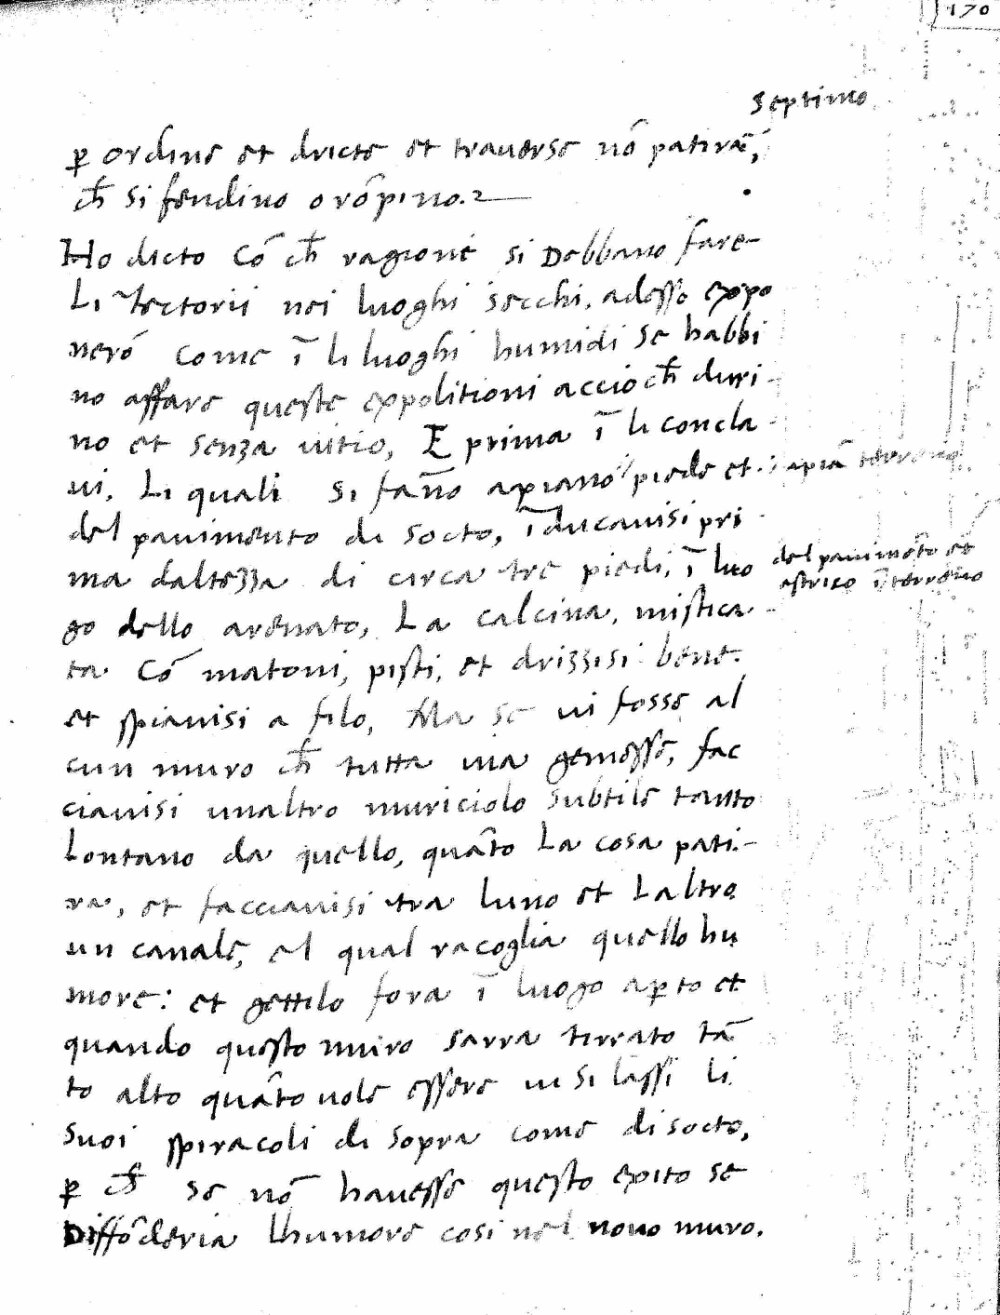 170
Septimo
ꝑ ordine et dricte et trauerse nō patirāˉ,
ch̄ si fendino o rōpino.
Ho dicto Cō ch̄ ragione si Debbano fare
Li tectorii nei luoghi secchi, adesso expo
nerō come ī li luoghi humidi se habbi
no affare queste expolitioni accioch̄ duri
no et senza uitio, E prima ī li concla
ui, Li quali si fan̄o apiano piede et
del pauimento di socto, īducauisi pri
ma daltezza di circa tre piedi, ī luo
del pauimēto et
astrico ī terreno
go dello arenato, La calcina, mistica
ta Cō matoni, pisti, et drizzisi bene
et spianisi a filo, Ma se ui fosse al
cun muro ch̄ tutta uia gemesse, fac
ciauisi unaltro muriciolo subtile tanto
Lontano da quello, quāto La cosa pati
ra, et facciauisi tra luno et Laltro
un canale, el qual racoglia quello hu
more: et gettilo fora ī luogo aꝑto et
quando questo muro sarra tirrato tā
to alto quāto uole essere ui si lassi li
suoi spiracoli di sopra come di socto,
ꝑ ch̄ se nō hauesse questo exito se
Diffōderia lhumore cosi nel nouo muro.